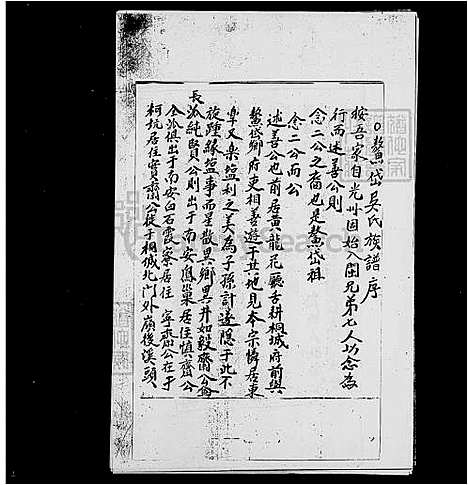 鰲岱吳氏族譜序
按吾家自光州固始入閩兄弟七人以念為
行而述善公則
念二公之裔也是鰲岱祖
念二公而公
述善公也前居黃龍花廳舌耕桐城府前與
鰲岱鄉府吏相善遊于其地見本宗憐居東
皋又樂塩利之美為子孫計遂隱于此不
旋踵緣塩事而星散異鄉異井如毅齋公
長派純賢公則出于南安鳳巢居住慎齋公
全派俱出于南安白石霞寮居住 寧齋公在于
柯坑居住實齋公徙于桐城北門外崩後溪頭